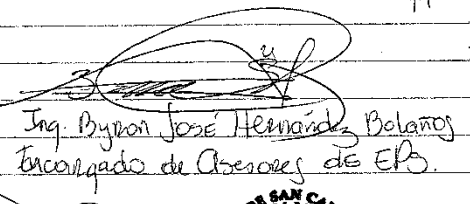 Ing. Byron José Hernández Bolaños
Encargado de Asesores de EPS.
DE SAN CA